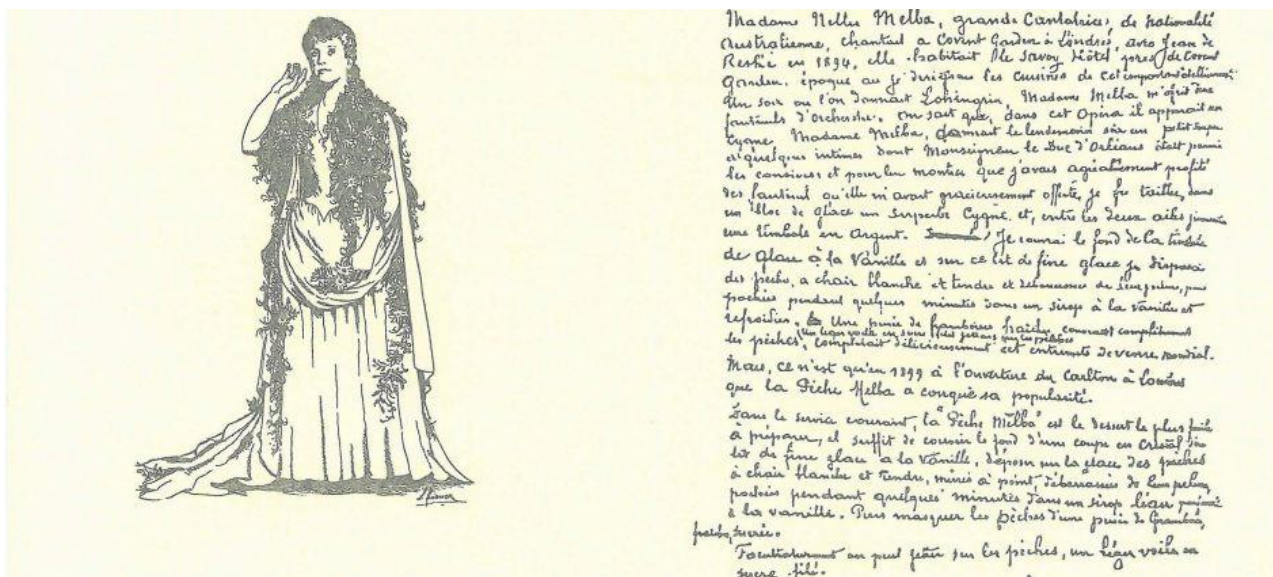 Madame Nellie Melba, grande Cantatrice, de nationalité
Australienne, chantait a Covent Garden à Londres, avec Jean de
Reské en 1894, elle habitait le Savoy Hôtel pres de Covent
Garden. époque ou je dirigeau les cuisines de cet important
Un soir ou l'on donnait Lohingrin, Madame Melba m'ofrit deux
fauteuils d'orchestre. On sait que, dans cet Opéra il apparait un
Cygne. Madame Melba, donnait le lendemain soir un petit
d'quelques intimes dont Monseigneur le Duc d'Orléans était parmi
les convives et pour lui montrer que j'avais agréablement profité
des fauteuil qu'elle m'avait gracieusement offerts, je fis tailler, dans
un bloc de glace un superbe Cygne et, entre les deux ailes
une timbale en Argent. Je couvrai le fond de la timbale
de glace à la Vanille et sur ce lit de fine glace je disposai
des pêches, a chair blanche et tendre et débarassées de leur puis
pochées pendant quelques minutes dans un sirop à la Vanille et
refroidies. Une purée de framboises fraîches couvrant complètement
un léger voile en sucre
les pêches, complétait délicieusement cet entremets devenu mondial.
Mais, ce n'est qu'en 1899 à l'ouverture du Carlton à Londres
que la Pêche Melba a conquis sa popularité.
Dans le service courant, la "Pêche Melba" est le dessert le plus facile
à préparer, il suffit de couvrir le fond d'une coupe en cristal
lit de fine glace a la Vanille, déposer sur la glace des pêches
à chair blanche et tendre, mûres à point, débarassées de leur pelure,
pochées pendant quelques minutes dans un sirop léger
à la vanille. Puis masquer les pêches d'une purée de framboise,
fraîche, sucrée.
Facultativement on peut jeter sur les pêches, un léger voile en
sucre filé.